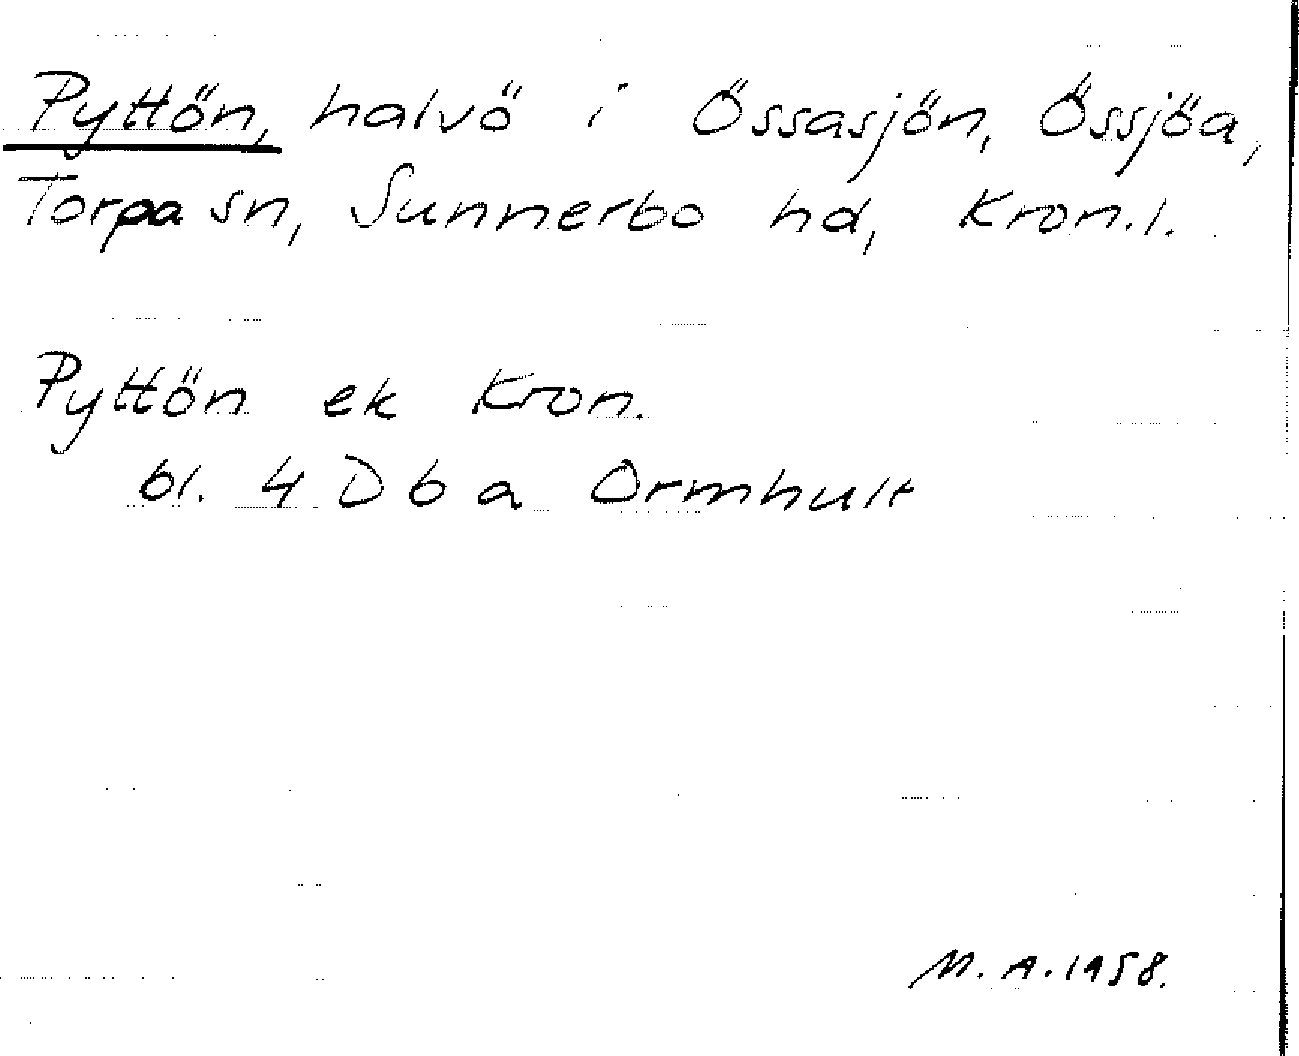 Pyttön, halvö i Össasjön, Össjöa,
Torpa sn, Sunnerbo hd, Kron.l.
Pyttön ek Kron.
bl. 4 D b a Ormhult
M.A.1958.